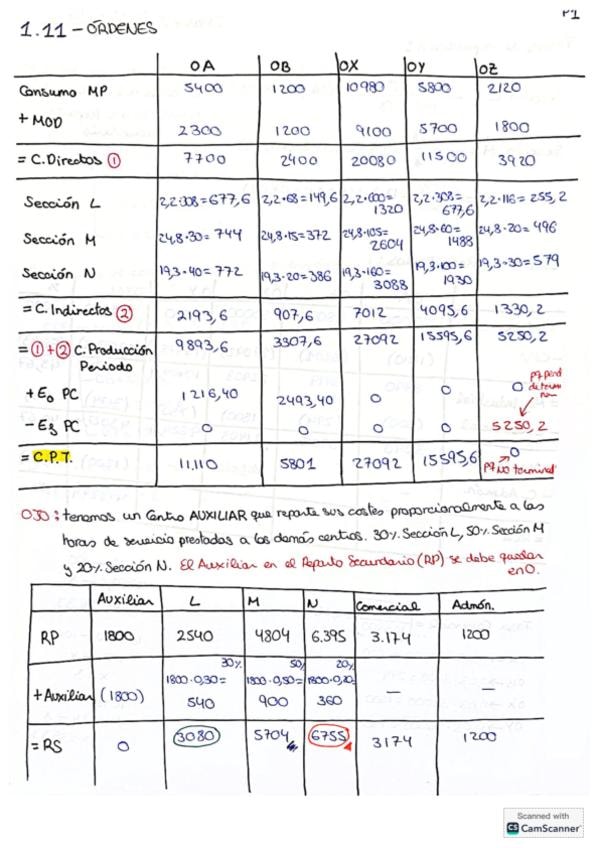 P1
1.11 - ÓRDENES
OA OB OX OY OZ
Consumo MP 5400 1200 10980 5800 2120
+ MOD 2300 1200 9100 5700 1800
= C. Directos ① 7700 2400 20080 11500 3920
Sección L 2,2·308=677,6 2,2·68=149,6 2,2·600=1320 2,2·308=677,6 2,2·116=255,2
Sección M 24,8·30=744 24,8·15=372 24,8·105=2604 24,8·60=1488 24,8·20=496
Sección N 19,3·40=772 19,3·20=386 19,3·160=3088 19,3·100=1930 19,3·30=579
= C. Indirectos ② 2193,6 907,6 7012 4095,6 1330,2
= ①+② C. Producción Periodo 9893,6 3307,6 27092 15595,6 5250,2
+ E₀ PC 1216,40 2493,40 0 0 0
- Ef PC 0 0 0 0 5250,2
= C.P.T. 11.110 5801 27092 15595,6 0
PT NO terminad
OJO: tenemos un Centro AUXILIAR que reparte sus costes proporcionalmente a las
horas de servicio prestados a los demás centros. 30% Sección L, 50% Sección M
y 20% Sección N. El Auxiliar en el Reparto Secundario (RP) se debe quedar
en 0.
Auxiliar L M N Comercial Admón.
RP 1800 2540 4804 6.395 3.174 1200
30% 50% 20%
+ Auxiliar (1800) 1800·0,30=540 1800·0,50=900 1800·0,20=360 — —
= RS 0 3080 5704 6755 3174 1200
Scanned with
CS CamScanner